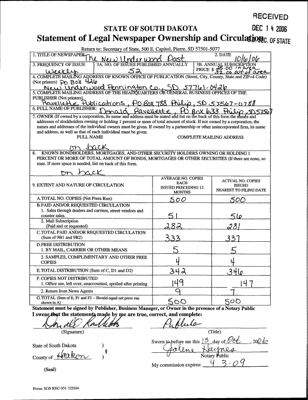 RECEIVED
DEC 14 2006
SEC. OF STATE
STATE OF SOUTH DAKOTA
Statement of Legal Newspaper Ownership and Circulation
Return to: Secretary of State, 500 E. Capitol, Pierre, SD 57501-5077
1. TITLE OF NEWSPAPER The New Underwood Post
2. DATE 10/6/06
3. FREQUENCY OF ISSUE Weekly
3A. NO. OF ISSUES PUBLISHED ANNUALLY 52
3B. ANNUAL SUBSCRIPTION PRICE $
4. COMPLETE MAILING ADDRESS OF KNOWN OFFICE OF PUBLICATION (Street, City, County, State and ZIP-4 Code)
(Not printers) PO Box 426
New Underwood Pennington Co., SD 57761-0426
5. COMPLETE MAILING ADDRESS OF THE HEADQUARTERS OF GENERAL BUSINESS OFFICES OF THE
PUBLISHER
Ravellette Publications, PO Box 788 Philip, SD 57567-0788
6. FULL NAME OF PUBLISHER: Donald Ravellette PO Box 788 Philip SD 57567
7. OWNER (If owned by a corporation, its name and address must be stated and list on the back of this form the names and
addresses of stockholders owning or holding 1 percent or more of total amount of stock. If not owned by a corporation, the
names and addresses of the individual owners must be given. If owned by a partnership or other unincorporated firm, its name
and address, as well as that of each individual must be given.
FULL NAME COMPLETE MAILING ADDRESS
on back
8. KNOWN BONDHOLDERS, MORTGAGES, AND OTHER SECURITY HOLDERS OWNING OR HOLDING 1
PERCENT OR MORE OF TOTAL AMOUNT OF BONDS, MORTGAGES OR OTHER SECURITIES (If there are none, so
state. If more space is needed, list on back of this form.
on back
9. EXTENT AND NATURE OF CIRCULATION
AVERAGE NO. COPIES EACH ISSUED PRECEDING 12 MONTHS
ACTUAL NO. COPIES ISSUED NEAREST TO FILING DATE
A. TOTAL NO. COPIES (Net Press Run) 500 500
B. PAID AND/OR REQUESTED CIRCULATION
1. Sales through dealers and carriers, street vendors and
counter sales. 51 56
2. Mail Subscription
(Paid and or requested) 282 281
C. TOTAL PAID AND/OR REQUESTED CIRCULATION
(Sum of 9B1 and 9B2) 333 337
D. FREE DISTRIBUTION
1. BY MAIL, CARRIER OR OTHER MEANS 5 5
2. SAMPLES, COMPLIMENTARY AND OTHER FREE
COPIES 4 4
E. TOTAL DISTRIBUTION (Sum of C, D1 and D2) 342 346
F. COPIES NOT DISTRIBUTED
1. Office use, left over, unaccounted, spoiled after printing 149 147
2. Return from News Agents 9 7
G. TOTAL (Sum of E, F1 and F2 - Should equal net press run
shown in A) 500 500
Statement must be signed by Publisher, Business Manager, or Owner in the presence of a Notary Public
I swear that the statements made by me are true, correct, and complete:
Publisher
(Signature) (Title)
State of South Dakota )
County of Haakon )
(Seal)
Sworn to before me this 13 day of Oct 2006
Notary Public
My commission expires: 4-3-09
Form: SOS REC 051 7/2004